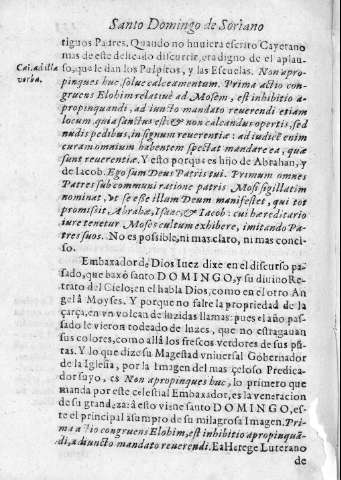 Santo Domingo de Soriano
tiguos Padres, Quando no huuiera escrito Cayetano
mas de este delicado discurrir, era digno de el aplau-
Cai. ad illa
verba.
so, que le dan los Pulpitos, y las Escuelas. Non apro-
pinques huc, solue calceamentum. Prima actio con-
gruens Elohim relatiuè ad Mosem, est inhibitio a-
propinquandi, ad iuncto mandato reuerendi etiam
locum quia sanctus est: & non calceandus opertis, sed
nudis pedibus, in signum reuerentiæ: ad iudicē enim
curam omnium habentem spectat mandare ea, quæ
sunt reuerentiæ. Y esto porque es hijo de Abrahan, y
de Iacob. Ego sum Deus Patris tui. Primum omnes
Patres sub communi ratione patris Mosi sigillatim
nominat, vt se esse illam Deum manifestet, qui tot
promissit Abrahæ, Isaac, & Iacob: cui hæreditario
iure tenetur Moses cultum exhibere, imitando Pa-
tres suos. No es possible, ni mas claro, ni mas conci-
so.
Embaxador de Dios Iuez dixe en el discurso pa-
sado, que baxò santo DOMINGO, y su diuino Re-
trato del Cielo; en el habla Dios, como en el otro An
gel à Moyses. Y porque no falte la propriedad de la
çarça, en vn volcan de luzidas llamas: pues el año pas-
sado le vieron rodeado de luzes, que no estragauan
sus colores, como allà los frescos verdores de sus pū-
tas. Y lo que dize su Magestad vniuersal Gobernador
de la Iglesia, por la Imagen del mas çeloso Predica-
dor suyo, es Non apropinques huc, lo primero que
manda por este celestial Embaxador, es la veneracion
de su grandeza: à esto viene santo DOMINGO, es-
te el principal assumpto de su milagrosa Imagen. Pri-
ma actio congruens Elohim, est inhibitio apropinquā-
di, adiuncto mandato reuerendi. Ea Herege Luterano
de